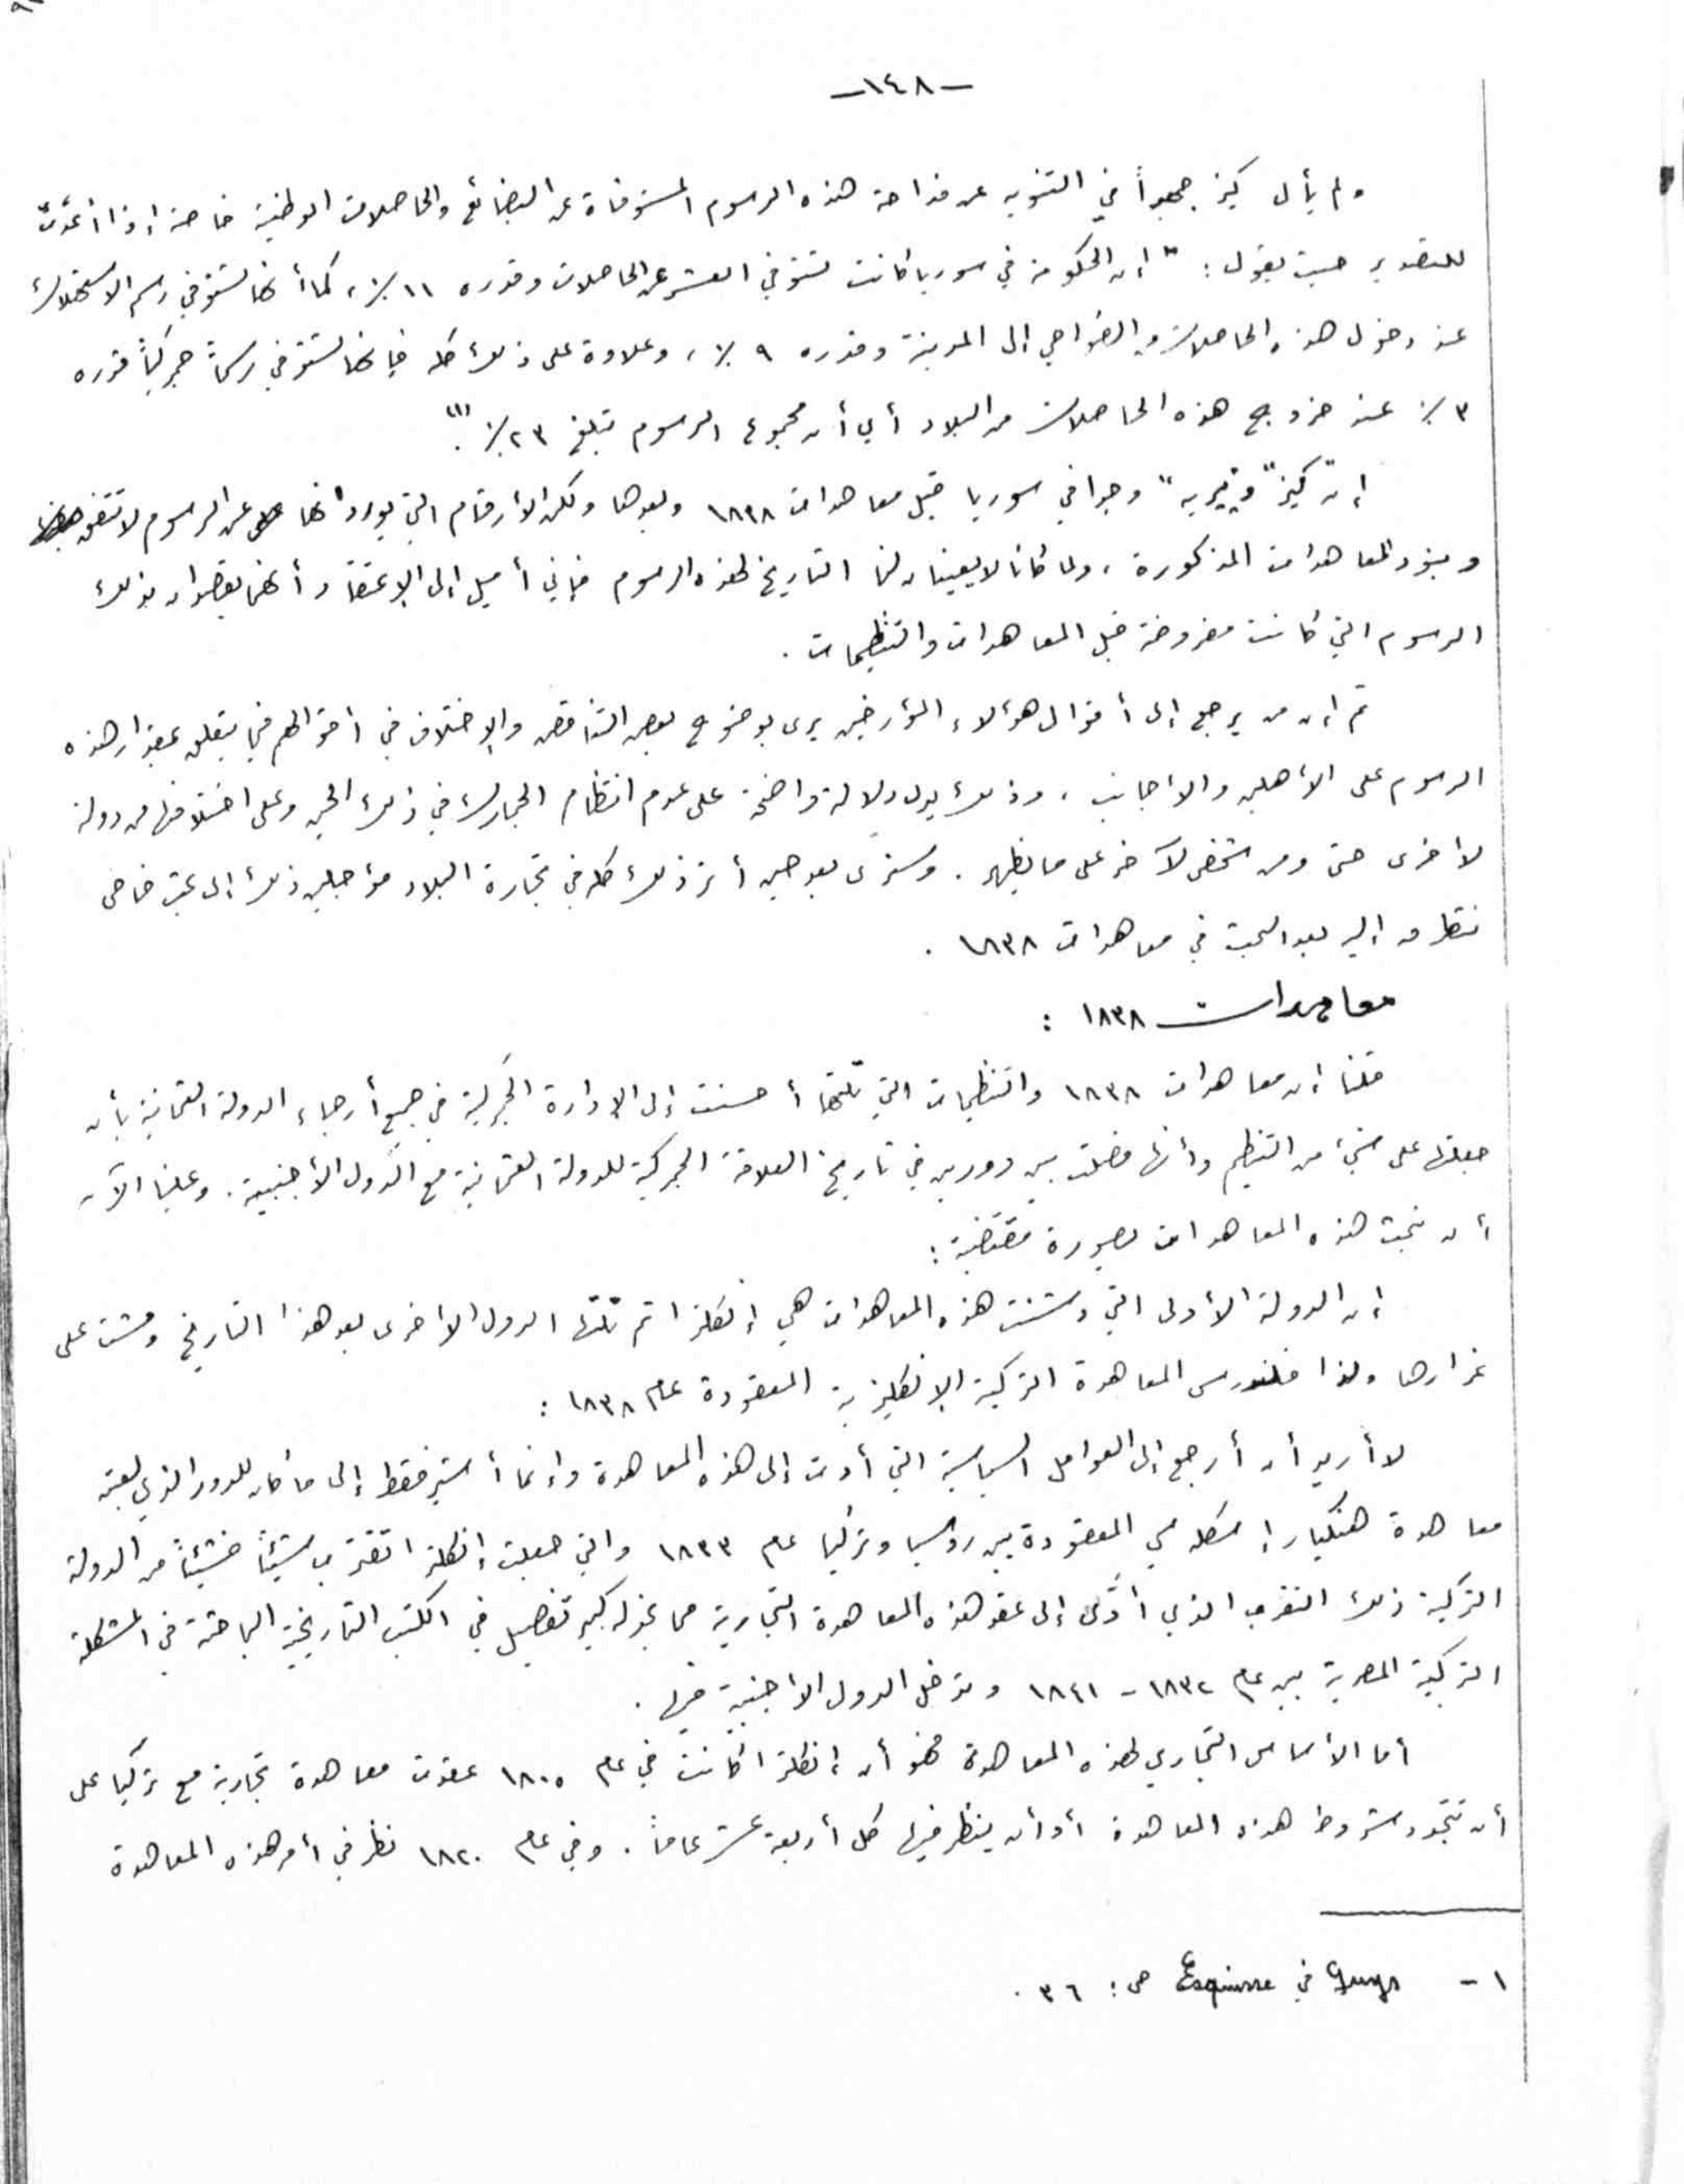 -١٤٨-
ولم يأل كيز جهداً في التنويه عن فداحة هذه الرسوم المستوفاة عن البضائع والحاصلات الوطنية خاصة إذا أُعدَّت
للتصدير حيث يقول : " إن الحكومة في سوريا كانت تستوفي العشر عن الحاصلات وقدره ١١ ٪، كما أنها تستوفي رسم الاستهلاك
عند دخول هذه الحاصلات من الضواحي إلى المدينة وقدره ٩ ٪، وعلاوة على ذلك كله فإنها تستوفي رسماً جمركياً قدره
٣ ٪ عند خروج هذه الحاصلات من البلاد أي أن مجموع الرسوم تبلغ ٢٣ ٪ "(١).
إنّ "كيز" و"پيريه" وجدا في سوريا قبل معاهدات ١٨٣٨ وبعدها ولكن الأرقام التي يوردانها عن الرسوم لا تتفق
وبنود المعاهدات المذكورة ، ولما كانا لا يعينان لنا التاريخ لهذه الرسوم فإني أميل إلى الإعتقاد أنهما يقصدان بذلك
الرسوم التي كانت مفروضة قبل المعاهدات والتنظيمات .
ثم إن من يرجع إلى أقوال هؤلاء المؤرخين يرى بوضوح بعض التناقض والإختلاف في أقوالهم فيما يتعلق بمقدار هذه
الرسوم على الأهلين والأجانب ، وذلك يدل دلالة واضحة على عدم انتظام الجمارك في ذلك الحين وعلى اختلافها من دولة
لأخرى حتى ومن شخص لآخر على ما يظهر . وسنرى بعد حين أثر ذلك كله في تجارة البلاد مؤجلين ذلك إلى بحث خاص
نتطرق إليه بعد البحث في معاهدات ١٨٣٨ .
معاهدات ١٨٣٨ :
قلنا إن معاهدات ١٨٣٨ والتنظيمات التي تلتها أحسنت إلى الإدارة الجمركية في جميع أرجاء الدولة العثمانية بأن
جعلتها على شيء من التنظيم وأنها فصلت بين دورين في تاريخ العلاقة الجمركية للدولة العثمانية مع الدول الأجنبية . وعلينا الآن
أن نبحث هذه المعاهدات بصورة مقتضبة :
إن الدولة الأولى التي دشنت هذه المعاهدات هي إنكلترا ثم تلتها الدول الأخرى بعد هذا التاريخ ومشت على
غرارها ولذا فلندرس المعاهدة التركية الإنكليزية المعقودة عام ١٨٣٨ :
لا أريد أن أرجع إلى العوامل السياسية التي أدت إلى هذه المعاهدة وإنما أشير فقط إلى ما كان للدور الذي لعبته
معاهدة هنكيار إسكله سي المعقودة بين روسيا وتركيا عام ١٨٣٣ والتي جعلت إنكلترا تقترب شيئاً فشيئاً من الدولة
التركية ذلك التقرب الذي أدّى إلى عقد هذه المعاهدة التجارية مما نجد له كبير تفصيل في الكتب التاريخية الباحثة في المشكلة
التركية المصرية بين عام ١٨٣٢ - ١٨٤١ وتدخل الدول الأجنبية فيها .
أما الأساس التجاري لهذه المعاهدة فهو أن إنكلترا كانت في عام ١٨٠٥ عقدت معاهدة تجارية مع تركيا على
أن تتجدد شروط هذه المعاهدة أو أن ينظر فيها كل أربعة عشر عاماً . وفي عام ١٨٢٠ نظر في أمر هذه المعاهدة
١ - Guys في Esquisse ص : ٣٦ .